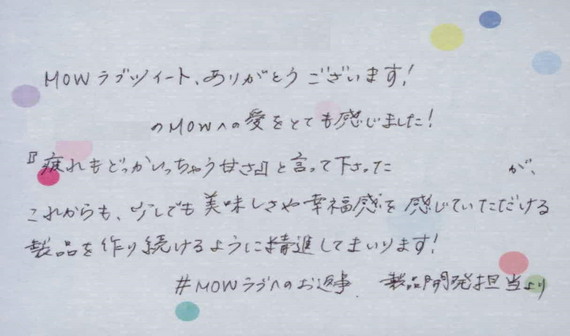 MOWラブツイート、ありがとうございます!
のMOWへの愛をとても感じました!
『疲れもどっかいっちゃう甘さ』と言って下さった が、
これからも、少しでも美味しさや幸福感を感じていただける
製品を作り続けるように精進してまいります!
#MOWラブへのお返事 製品開発担当より